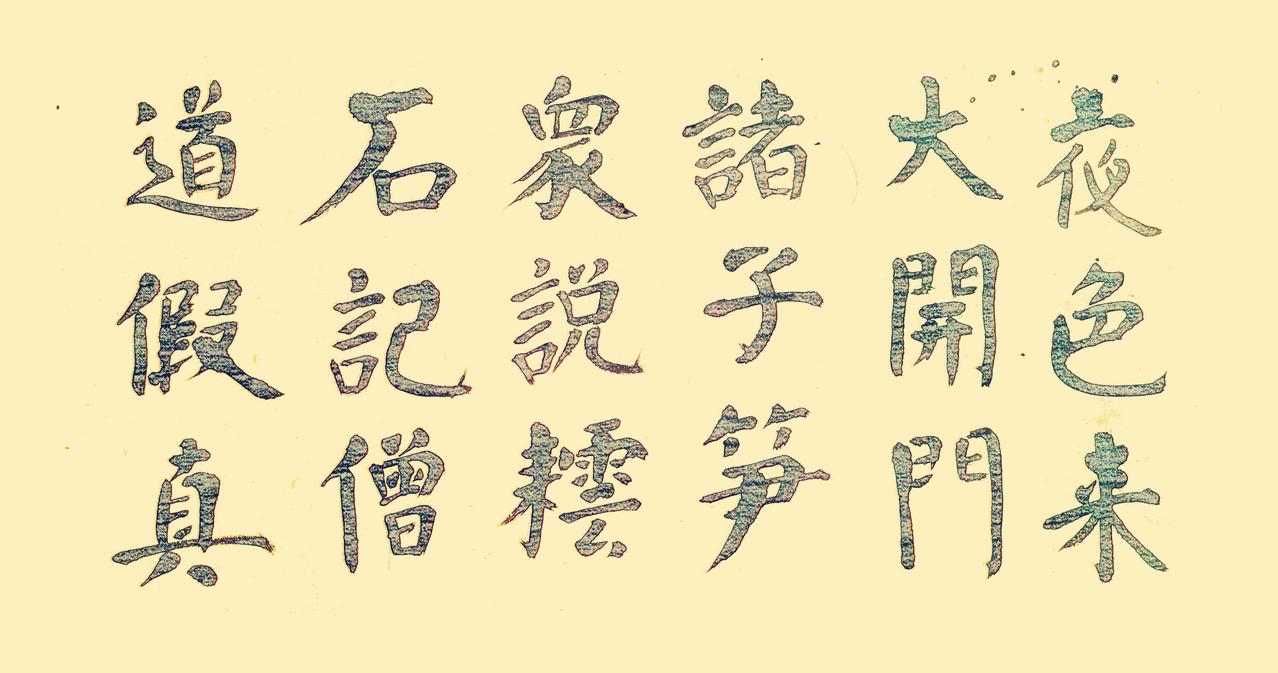 夜色来
大開門
諸子笋
衆説耘
石記僧
道假真